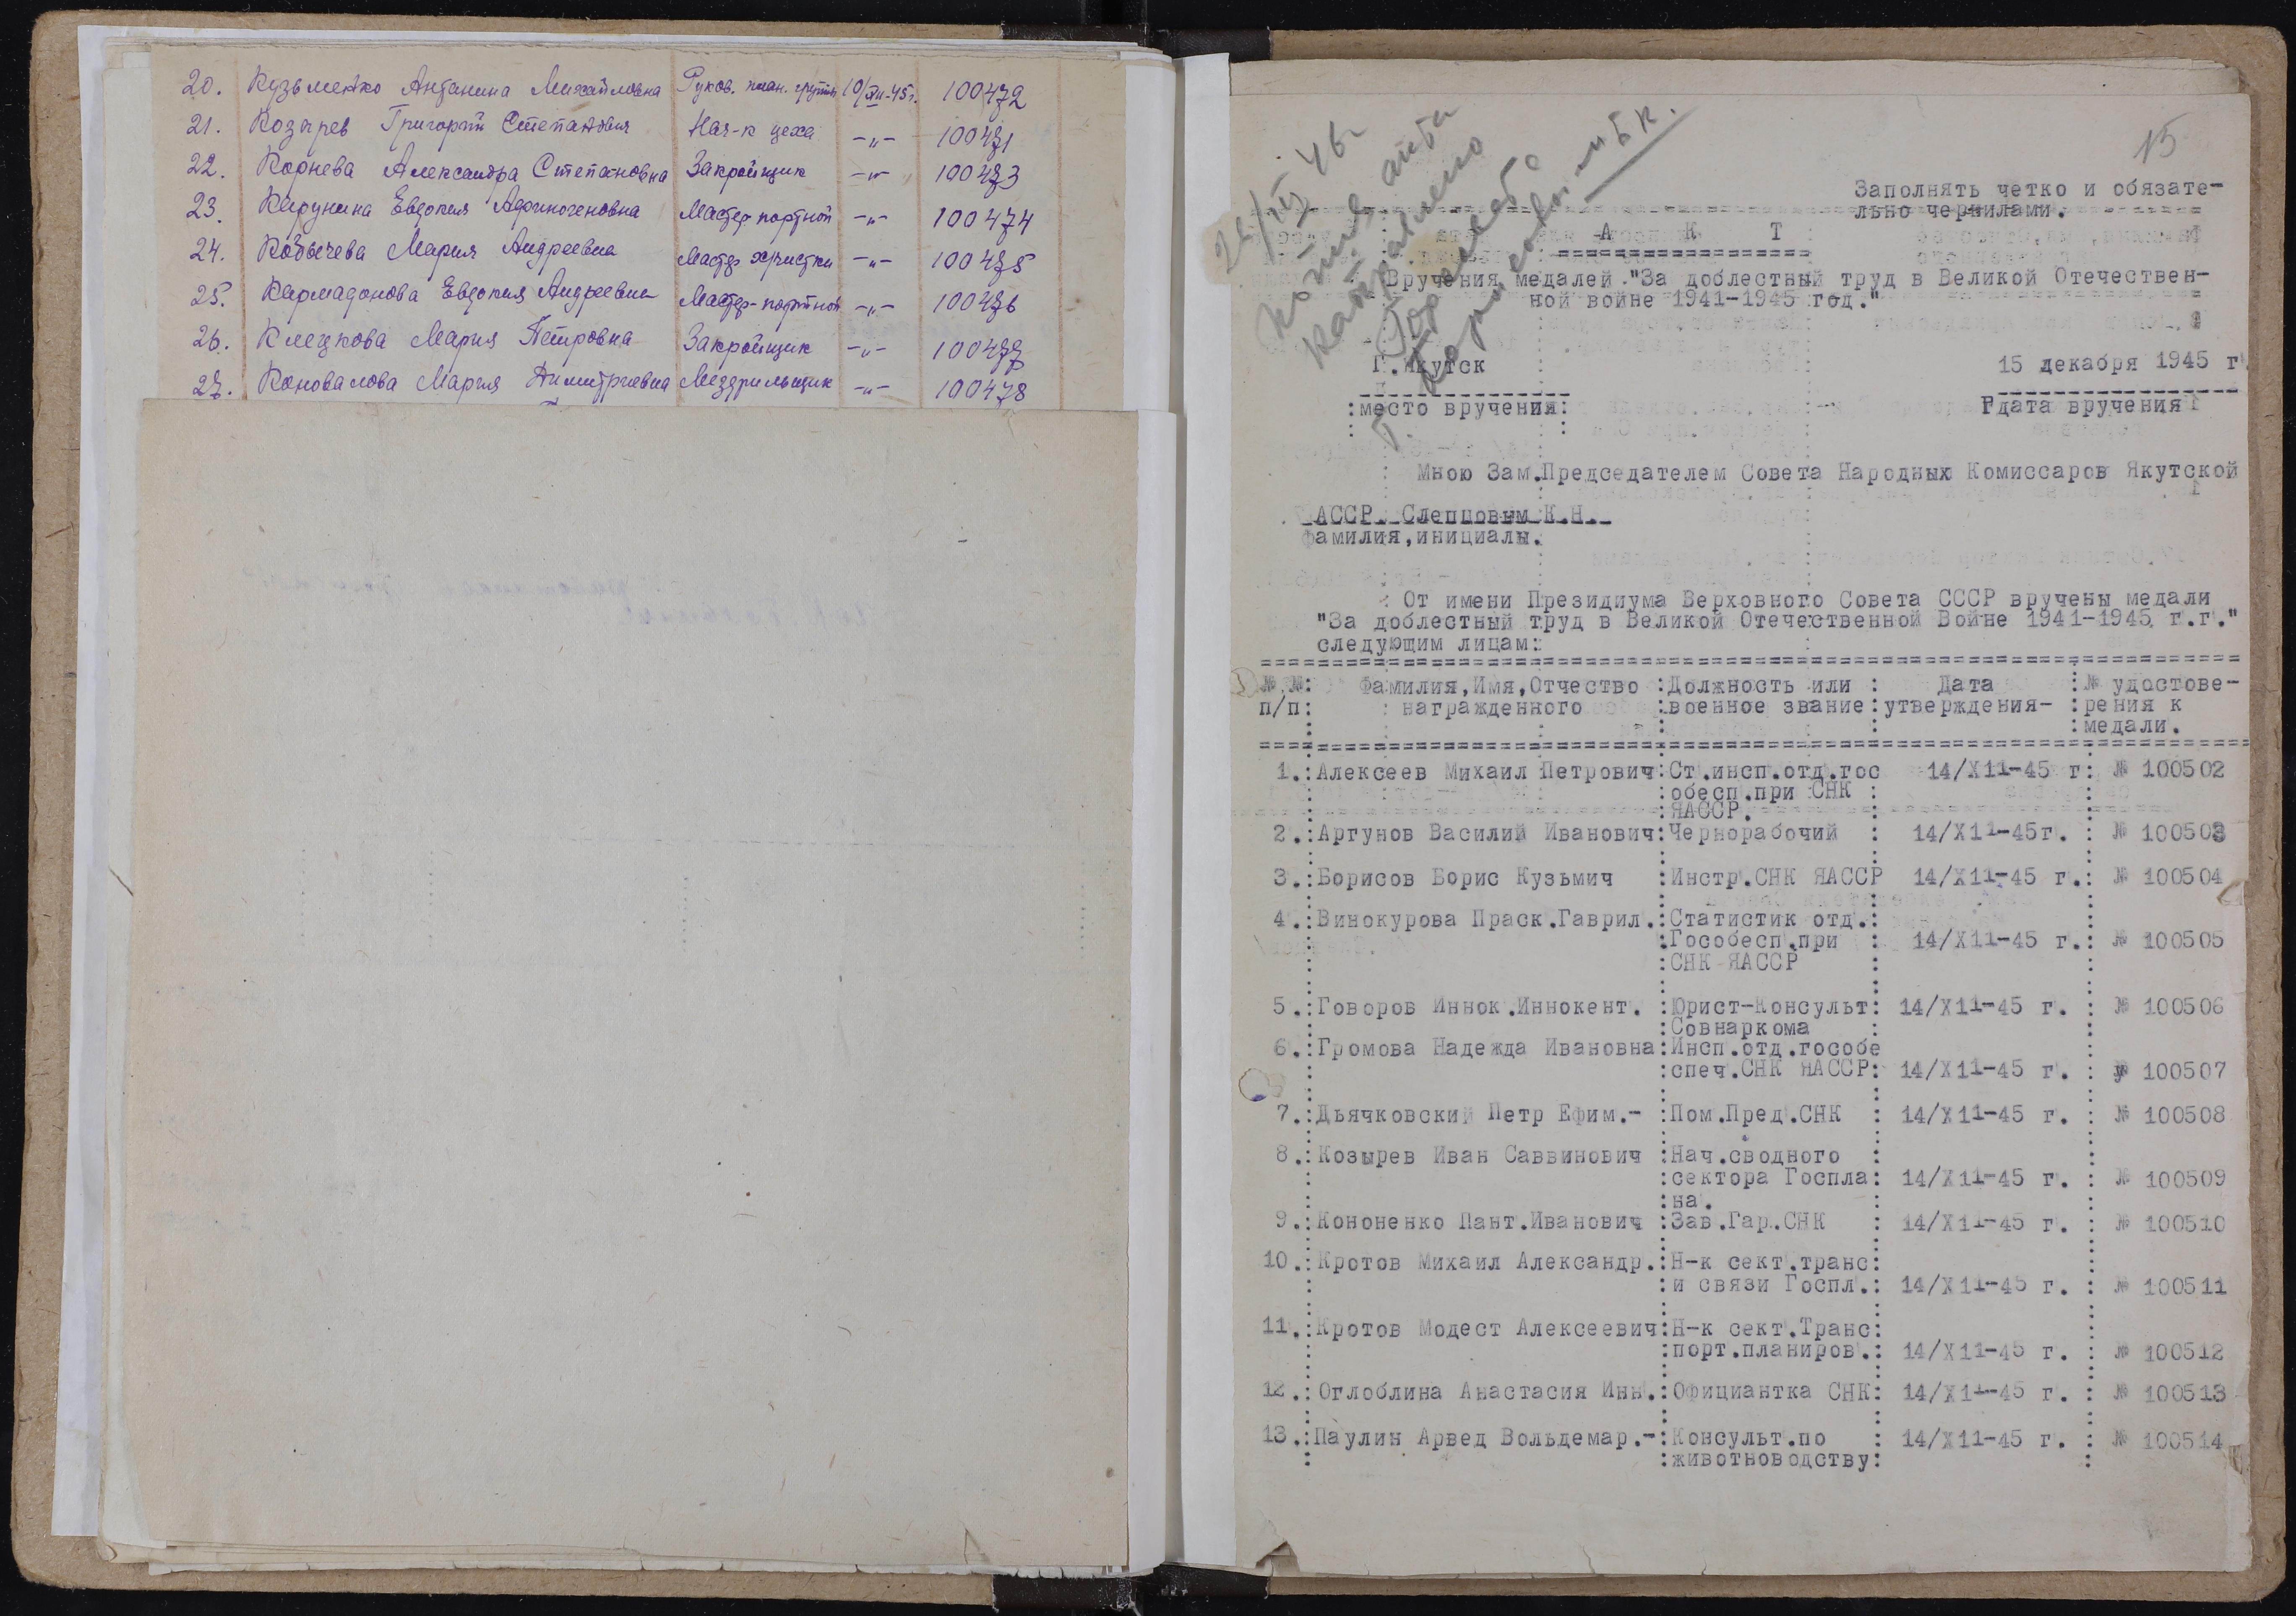 20. Кузьменко Антонина Михайловна Руков. план. группы 10/XII-45г. 100472
21. Козырев Григорий Степанович Нач-к цеха -"- 100471
22. Корнева Александра Степановна Закройщик -"- 100473
23. Евдокия Афиногеновна Мастер портной -"- 100474
24. Кобычева Мария Андреевна Мастер -"- 100475
25. Кармадонова Евдокия Андреевна Мастер-портной -"- 100476
26. Клецкова Мария Петровна Закройщик -"- 100477
27. Коновалова Мария Димитриевна Мездрильщик -"- 100478
15
Заполнять четко и обязате-
льно чернилами.
А К Т
Вручения медалей "За доблестный труд в Великой Отечествен-
ной войне 1941-1945 год."
Г.Якутск 15 декабря 1945 г.
:место вручения: дата вручения
Мною Зам.Председателем Совета Народных Комиссаров Якутской
АССР. Слепцовым К.Н.
фамилия,инициалы.
От имени Президиума Верховного Совета СССР вручены медали
"За доблестный труд в Великой Отечественной Войне 1941-1945 г.г."
следующим лицам:
№ №: Фамилия,Имя,Отчество :Должность или : Дата :№ удостове-
п/п: награжденного :военное звание:утверждения- :рения к
:медали.
1.:Алексеев Михаил Петрович:Ст.инсп.отд.гос 14/X11-45 г: № 100502
:обесп.при СНК :
:ЯАССР. :
2.:Аргунов Василий Иванович:Чернорабочий : 14/X11-45г. : № 100503
3.:Борисов Борис Кузьмич :Инстр.СНК ЯАССР 14/X11-45 г.: № 100504
4.:Винокурова Праск.Гаврил.:Статистик отд.:
:Гособесп.при : 14/X11-45 г.: № 100505
:СНК ЯАССР :
5.:Говоров Иннок.Иннокент. :Юрист-Консульт: 14/X11-45 г. : № 100506
:Совнаркома :
6.:Громова Надежда Ивановна:Инсп.отд.гособе
:спеч.СНК ЯАССР: 14/X11-45 г. : № 100507
7.:Дьячковский Петр Ефим.- :Пом.Пред.СНК : 14/X11-45 г. : № 100508
8.:Козырев Иван Саввинович :Нач.сводного :
:сектора Госпла: 14/X11-45 г. : № 100509
:на. :
9.:Кононенко Пант.Иванович :Зав.Гар.СНК : 14/X11-45 г. : № 100510
10.:Кротов Михаил Александр.:Н-к сект.транс:
:и связи Госпл.: 14/X11-45 г. : № 100511
11.:Кротов Модест Алексеевич:Н-к сект.Транс:
:порт.планиров.: 14/X11-45 г. : № 100512
12.:Оглоблина Анастасия Инн.:Официантка СНК: 14/X11-45 г. : № 100513
13.:Паулин Арвед Вольдемар.-:Консульт.по : 14/X11-45 г. : № 100514
:животноводству: